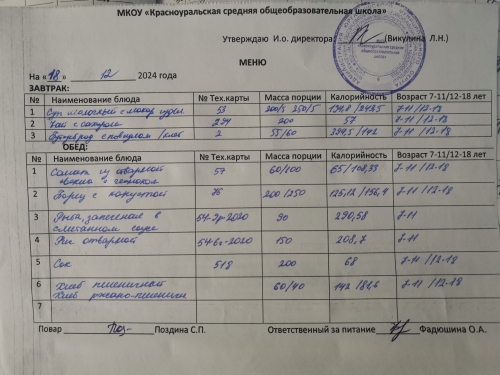 МКОУ «Красноуральская средняя общеобразовательная школа»
Утверждаю И.о. директора (Викулина Л.Н.)
МЕНЮ
На «18» 12 2024 года
ЗАВТРАК:
№ Наименование блюда № Тех.карты Масса порции Калорийность Возраст 7-11/12-18 лет
1 Суп молочный с макар издел 53 200/5 250/5 7-11/12-18
2 Чай с сахаром 274 200 57 7-11/12-18
3 Бутерброд с повидлом /хлеб 2 55/60 7-11/12-18
ОБЕД:
№ Наименование блюда № Тех.карты Масса порции Калорийность Возраст 7-11/12-18 лет
1 Салат из отварной 57 60/100 65/108,33 7-11/12-18
свеклы с чесноком
2 Борщ с капустой 76 200/250 125,12/156,4 7-11/12-18
3 Рыба, запеченая в 54-9р-2020 90 290,58 7-11
сметанном соусе
4 Рис отварной 54-6г-2020 150 208,7 7-11
5 Сок 518 200 68 7-11/12-18
6 Хлеб пшеничный 60/40 142/81,6 7-11/12-18
Хлеб ржано-пшеничн
7
Повар Поздина С.П. Ответственный за питание Фадюшина О.А.